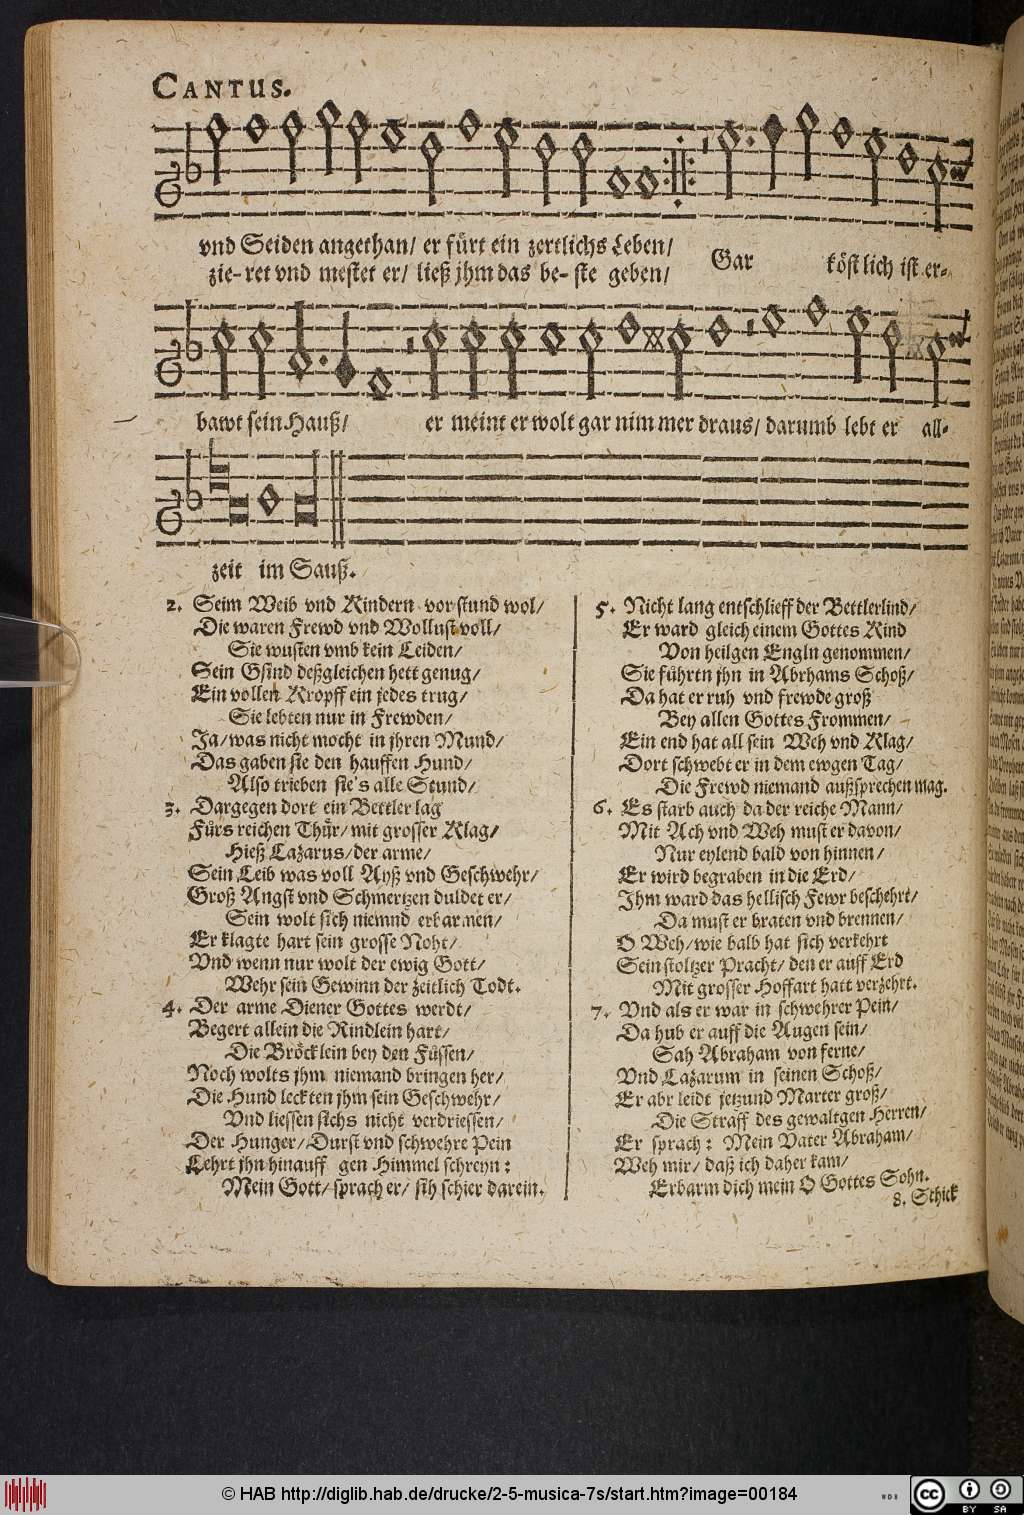 CANTUS.
vnd Seiden angethan/ er fürt ein zertlichs Leben/
zie-ret vnd mestet er/ ließ jhm das be-ste geben/
Gar köstlich ist er-
bawt sein Hauß/ er meint er wolt gar nim mer draus/ darumb lebt er all-
zeit im Sauß.
2. Seim Weib vnd Kindern vorstund wol/
Die waren Frewd vnd Wollust voll/
Sie wusten vmb kein Leiden/
Sein Gsind deßgleichen hett genug/
Ein vollen Kropff ein jedes trug/
Sie lebten nur in Frewden/
Ja/was nicht mocht in jhren Mund/
Das gaben sie den hauffen Hund/
Also trieben sie's alle Stund/
3. Dargegen dort ein Bettler lag
Fürs reichen Thür/mit grosser Klag/
Hieß Lazarus/der arme/
Sein Leib was voll Ayß vnd Geschwehr/
Groß Angst vnd Schmertzen duldet er/
Sein wolt sich niemnd erbarmen/
Er klagte hart sein grosse Noht/
Vnd wenn nur wolt der ewig Gott/
Wehr sein Gewinn der zeitlich Todt.
4. Der arme Diener Gottes werdt/
Begert allein die Rindlein hart/
Die Bröcklein bey den Füssen/
Noch wolts jhm niemand bringen her/
Die Hund leckten jhm sein Geschwehr/
Vnd liessen sichs nicht verdriessen/
Der Hunger/Durst vnd schwehre Pein
Lehrt jhn hinauff gen Himmel schreyn:
Mein Gott/sprach er/ sih schier darein.
5. Nicht lang entschlieff der Bettlerlind/
Er ward gleich einem Gottes Kind
Von heilgen Engln genommen/
Sie führtn jhn in Abrhams Schoß/
Da hat er ruh vnd frewde groß
Bey allen Gottes Frommen/
Ein end hat all sein Weh vnd Klag/
Dort schwebt er in dem ewgen Tag/
Die Frewd niemand außsprechen mag.
6. Es starb auch da der reiche Mann/
Mit Ach vnd Weh must er davon/
Nur eylend bald von hinnen/
Er wird begraben in die Erd/
Jhm ward das hellisch Fewr beschehrt/
Da must er braten vnd brennen/
O Weh/wie balb hat sich verkehrt
Sein stoltzer Pracht/ den er auff Erd
Mit grosser Hoffart hatt verzehrt.
7. Vnd als er war in schwehrer Pein/
Da hub er auff die Augen sein/
Sah Abraham von ferne/
Vnd Lazarum in seinen Schoß/
Er abr leidt jetzund Marter groß/
Die Straff des gewaltgen Herren/
Er sprach: Mein Vater Abraham/
Weh mir/ daß ich daher kam/
Erbarm dich mein O Gottes Sohn.
8. Schick
© HAB http://diglib.hab.de/drucke/2-5-musica-7s/start.htm?image=00184
WDB
CC BY SA